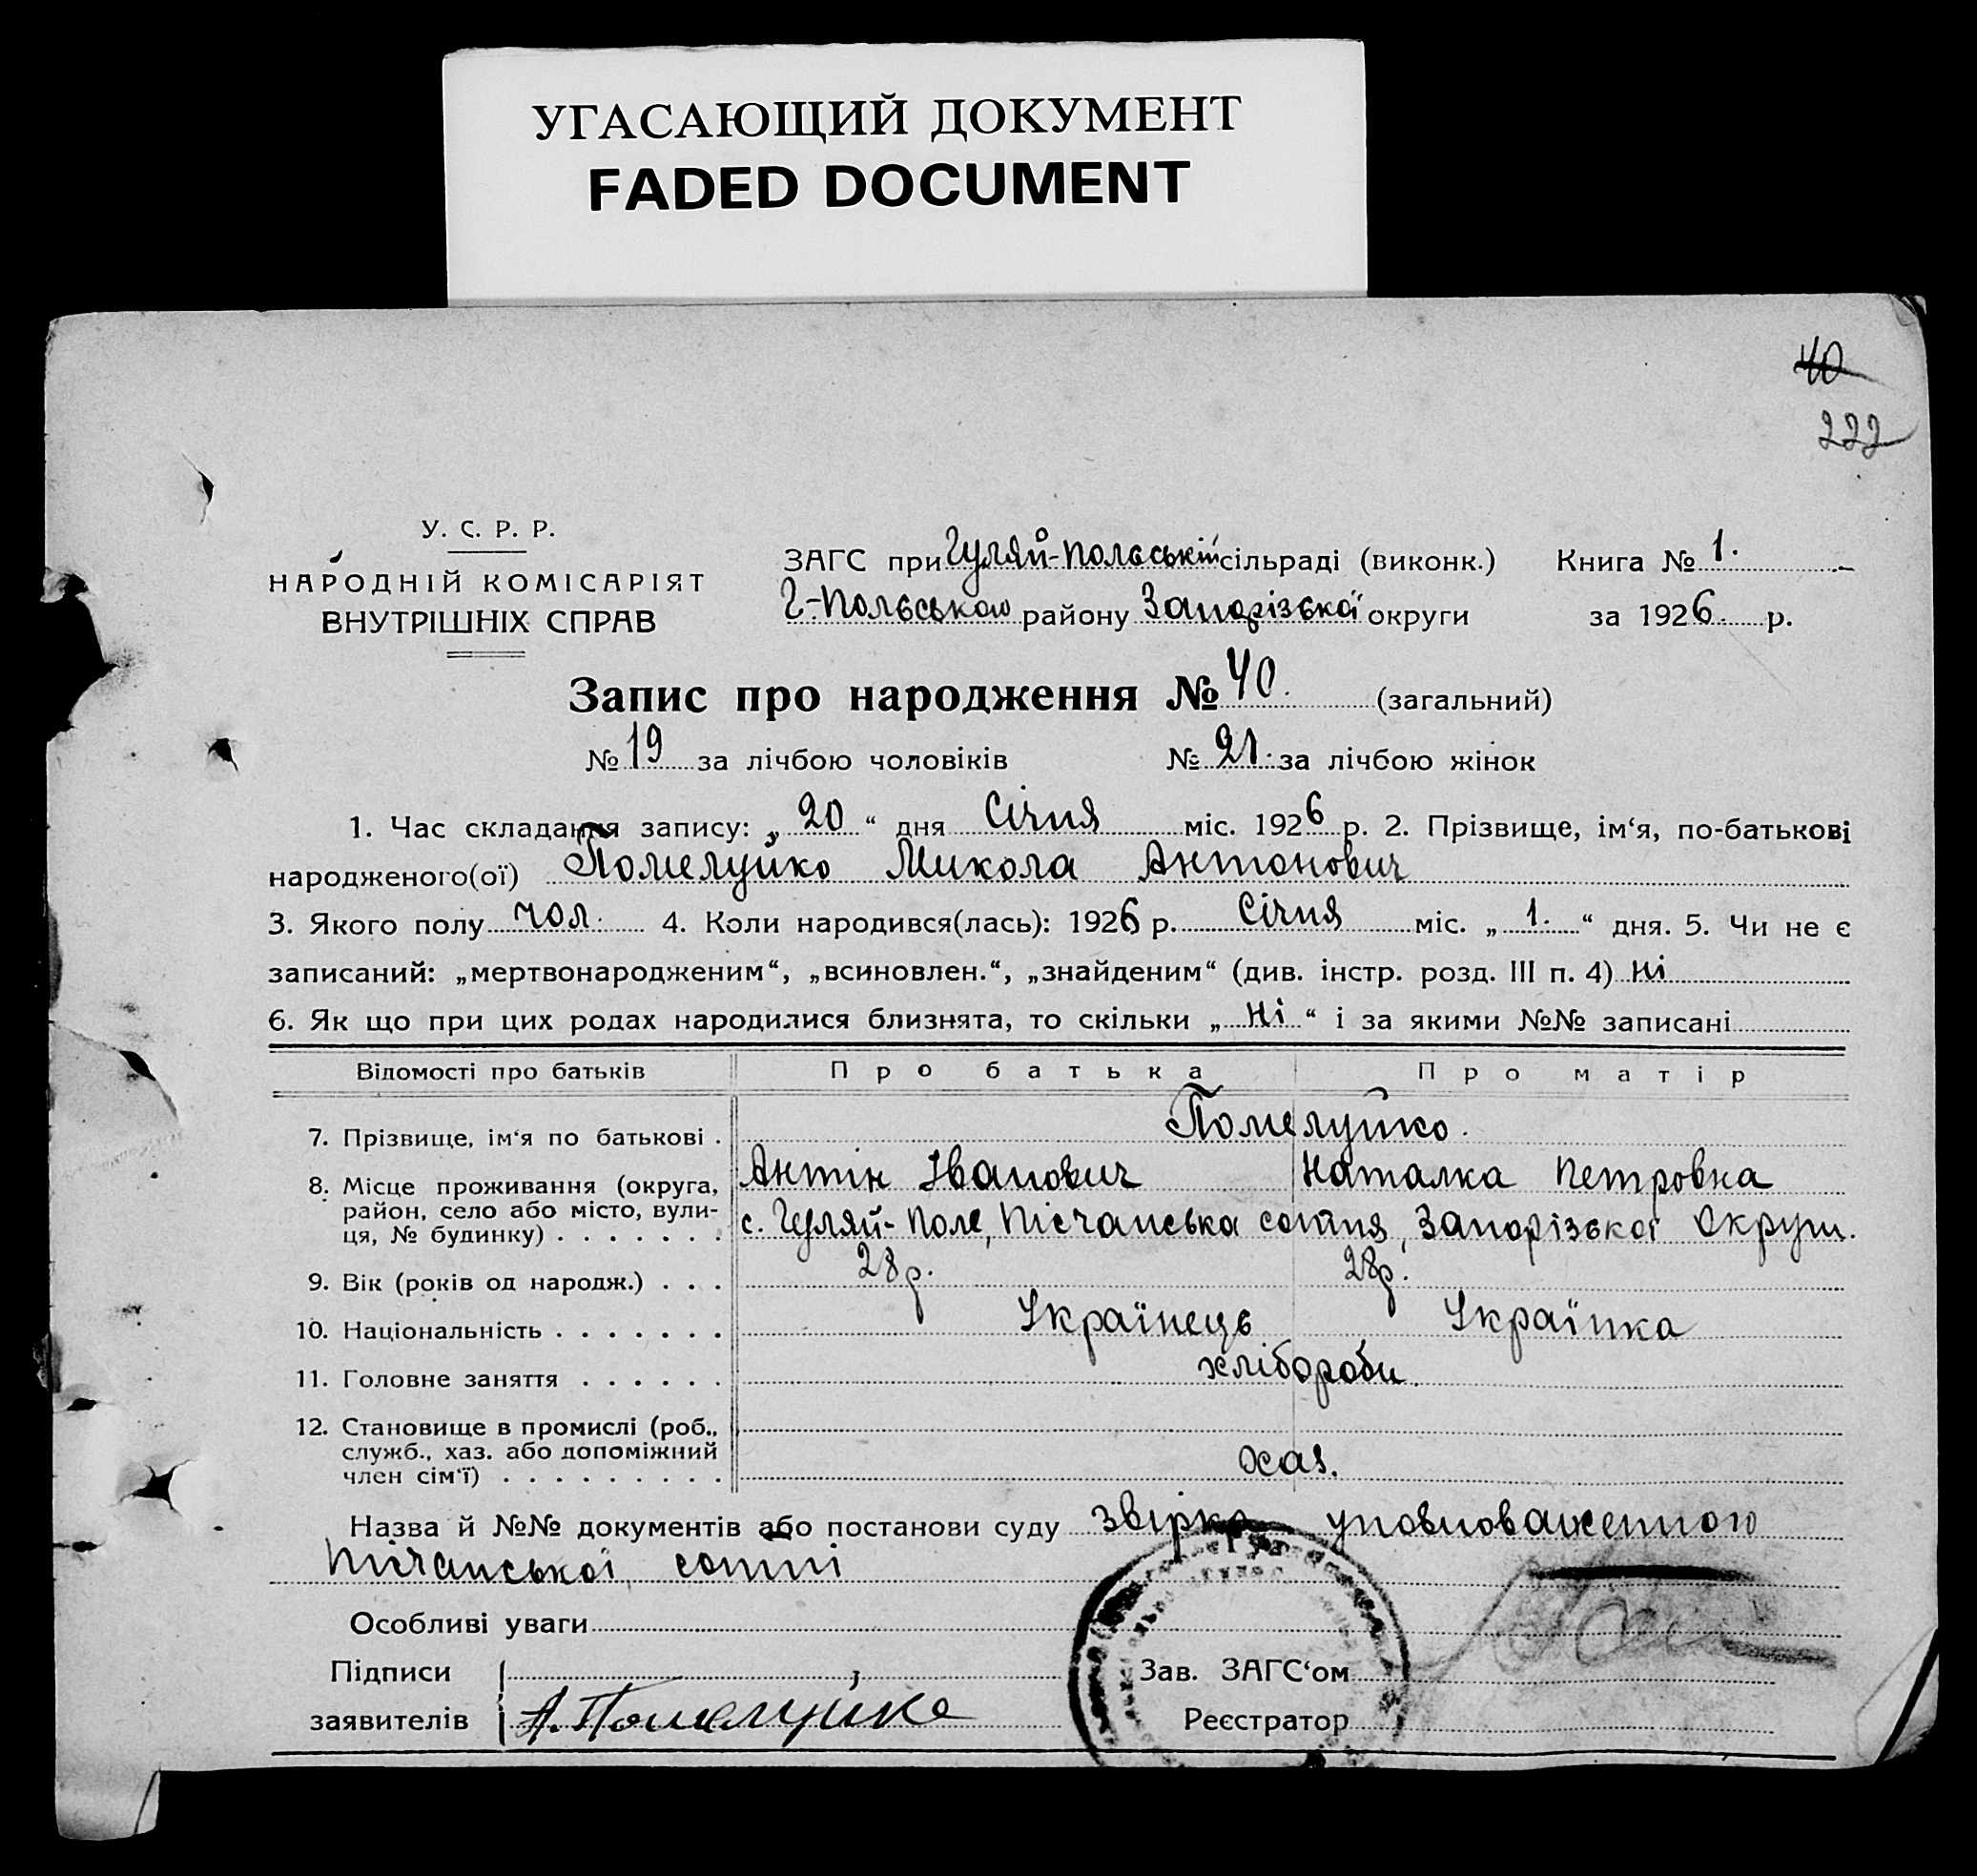 УГАСАЮЩИЙ ДОКУМЕНТ
FADED DOCUMENT
40
222
У. С. Р. Р.
НАРОДНІЙ КОМІСАРІЯТ
ВНУТРІШНІХ СПРАВ
ЗАГС при Гуляй-Польській сільраді (виконк.) Книга № 1.
Г-Польського району Запорізької округи за 1926 р.
Запис про народження № 40. (загальний)
№ 19 за лічбою чоловіків № 21. за лічбою жінок
1. Час складання запису: „ 20 “ дня Січня міс. 1926 р. 2. Прізвище, ім‘я, по-батькові
народженого(ої) Помелуйко Микола Антонович
3. Якого полу чол. 4. Коли народився(лась): 1926 р. Січня міс. „ 1. “ дня. 5. Чи не є
записаний: „мертвонародженим“, „всиновлен.“, „знайденим“ (див. інстр. розд. III п. 4) ні
6. Як що при цих родах народилися близнята, то скільки „ ні “ і за якими №№ записані
Відомості про батьків Про батька Про матір
7. Прізвище, ім‘я по батькові . Помелуйко.
Антін Іванович Наталка Петровна
8. Місце проживання (округа,
район, село або місто, вули-
ця, № будинку) . . . . . . . с. Гуляй-Поле, Пісчанська сотня, Запорізької Округи.
9. Вік (років од народж.) . . . 28 р. 28 р.
10. Національність . . . . . . . Українець Українка
11. Головне заняття . . . . . . хлібороби.
12. Становище в промислі (роб.,
служб., хаз. або допоміжний
член сім‘ї) . . . . . . . . . хаз.
Назва й №№ документів або постанови суду звірка уповноваженного
Пісчанської сотні
Особливі уваги
Підписи Зав. ЗАГС‘ом
заявителів А. Помелуйко Реєстратор